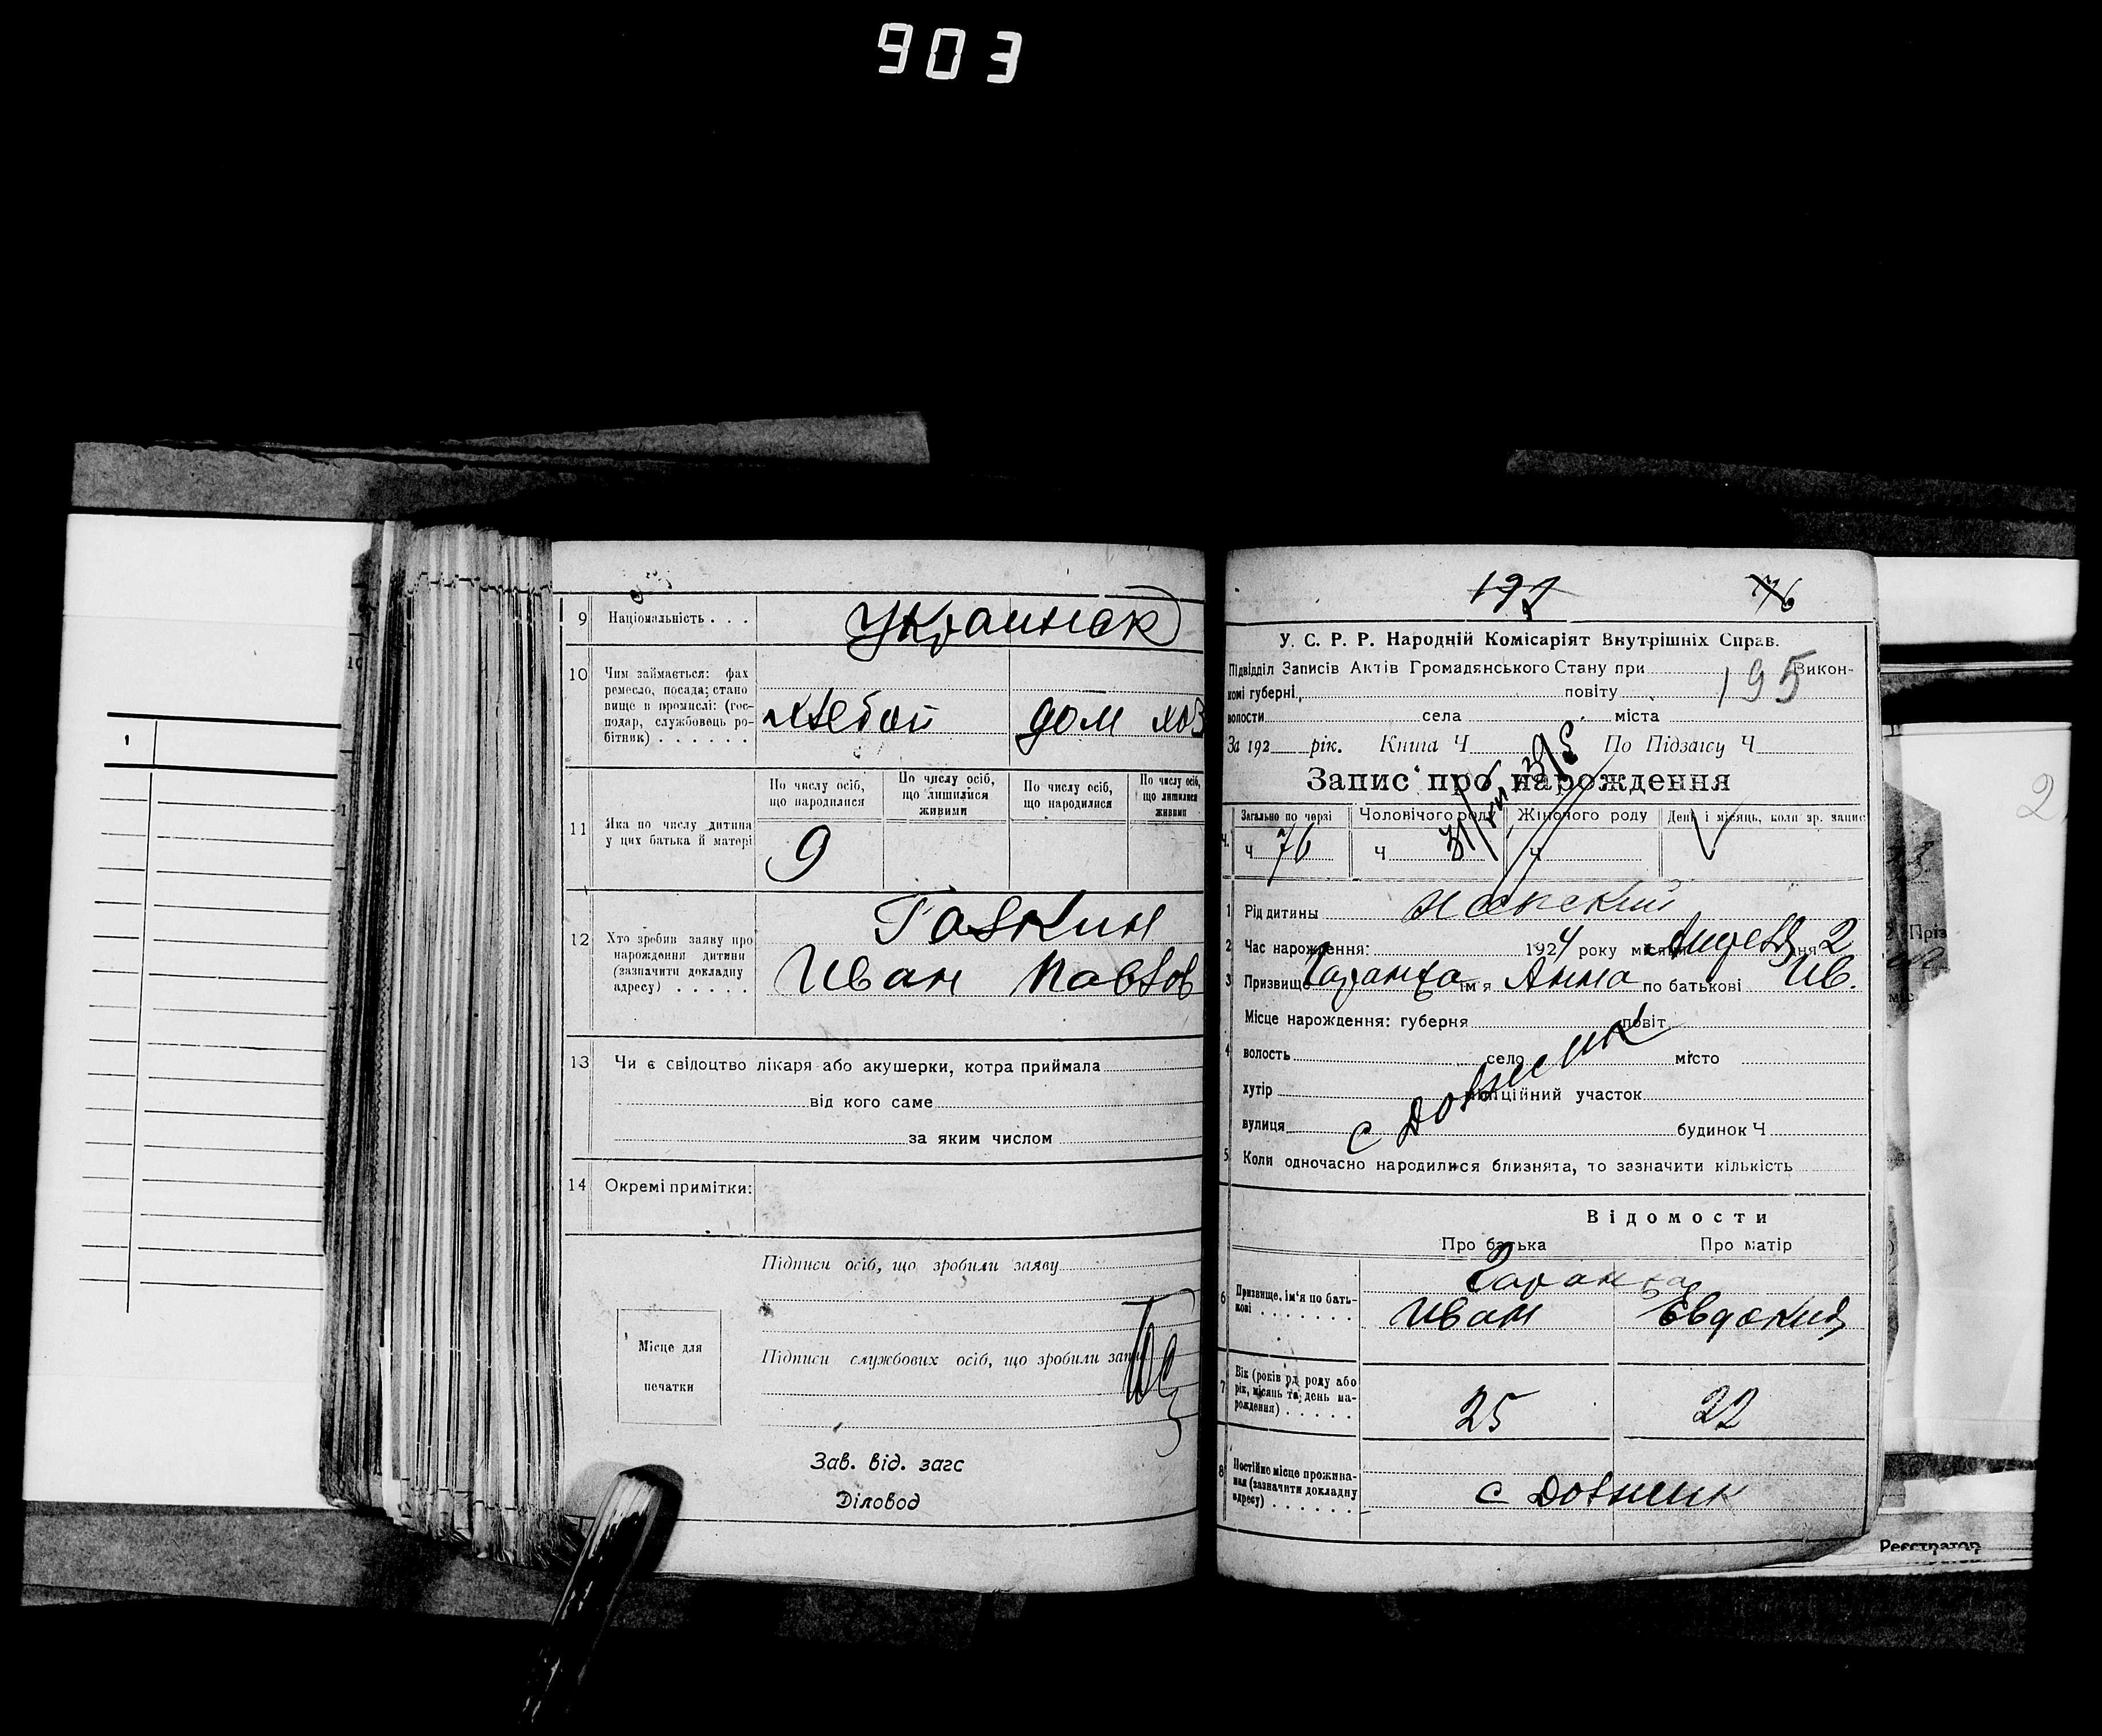 903
9 Національність . . . Украинск
10 Чим займається: фах
ремесло, посада; стано
вище в промислі: (гос-
подар, службовець ро-
бітник) . . . . . .
хлебоп дом хоз
11 Яка по числу дитина
у цих батька й матері
По числу осіб,
що народилися
По числу осіб,
що лишилися
живими
По числу осіб,
що народилися
По числу осіб,
що лишилися
живими
9
12 Хто зробив заяву про
нарождення дитини
(зазначити докладну
адресу) . . . . .
Галкин
Иван Павлов
13 Чи є свідоцтво лікаря або акушерки, котра приймала
від кого саме
за яким числом
14 Окремі примітки:
Підписи осіб, що зробили заяву
Місце для
печатки
Підписи службових осіб, що зробили запис
Зав. від. загс
Діловод
76
У. С. Р. Р. Народній Комісаріят Внутрішніх Справ.
Підвідділ Записів Актів Громадянського Стану при 195 Викон-
комі губерні, повіту
волости села міста
За 192 рік. Книга Ч По Підзагсу Ч
Запис про нарождення
Загально по черзі Чоловічого роду Жіночого роду День і місяць, коли зр. запис
Ч 76 Ч 31/XII Ч
1 Рід дитины женский
2 Час нарождення: 1924 року місяця дня 2
3 Призвище Гаранжа ім'я Анна по батькові Ив.
Місце нарождення: губерня повіт
4 волость село місто
хутір міліційний участок
вулиця с Довжик будинок Ч
5 Коли одночасно народилися близнята, то зазначити кількість
Відомости
Про батька Про матір
6 Призвище, ім'я по бать-
кові . . . . . .
Гаранжа
Иван Евдокия
7 Вік (років від роду або
рік, місяць та день на-
рождення) . . . . .
25 22
8 Постійне місце прожива-
ння (зазначити докладну
адресу) . . . . . .
Реєстратор